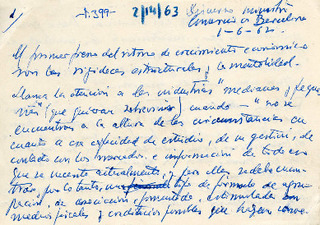 1
-1399-
2/14/63
Discurso ministro
Comercio Barcelona
1-6-62
El primer freno del ritmo de crecimiento económico
son las "rigideces estructurales y la mentalidad.
llama la atención a las industrias "medianas y peque
ñas" (que quieran sobrevivir) cuando — "no se
encuentran a la altura de las circunstancias en
cuanto a su capacidad de estudios, de su gestión, de
contacto con los mercados e información de todo en
que se necesite actualmente, y para ellas se debe encon
trar, por lo tanto, un tipo de fórmula de agru
pación, de asociación fomentada, estimulada con
medios fiscales y crediticios posibles que hagan conve-